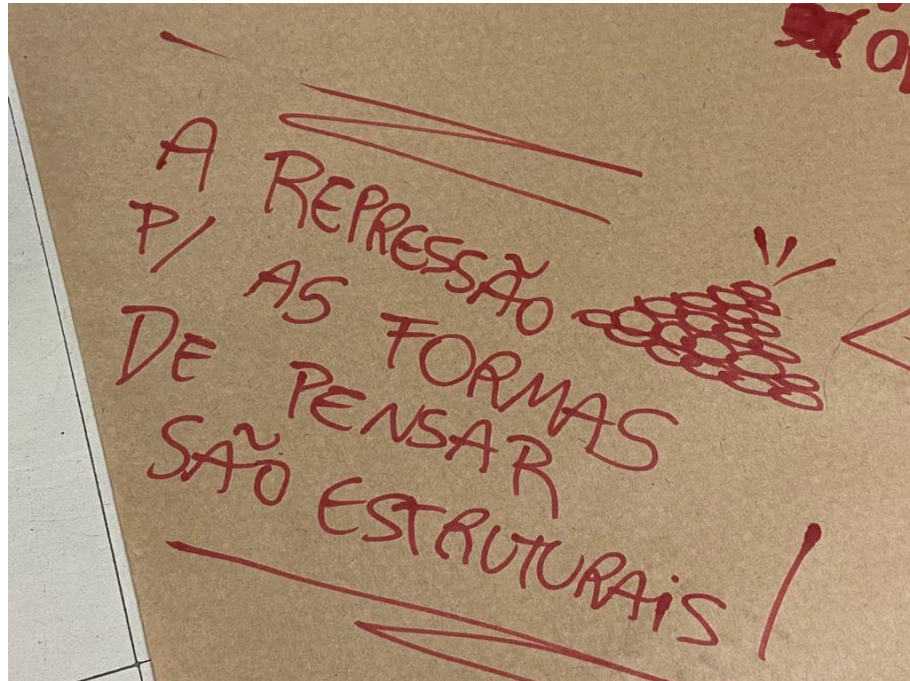 A REPRESSÃO
P/ AS FORMAS
DE PENSAR
SÃO ESTRUTURAIS!